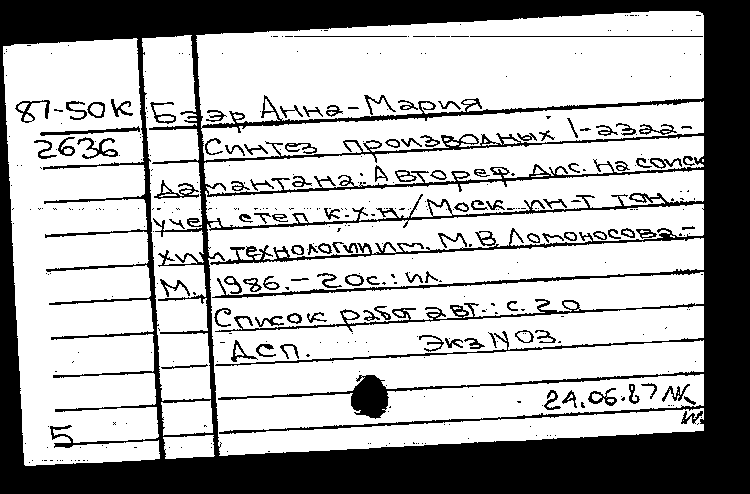 87-50К Бээр Анна-Мария
2636 Синтез производных 1-азаа-
дамантана: Автореф. дис. на соиск
учен. степ к.х.н:/Моск. ин-т тон.
хим. технологии им. М.В Ломоносова.-
М., 1986.- 20с.: ил
Список работ авт.: с. 20
ДСП. Экз N 03.
24.06.87
5